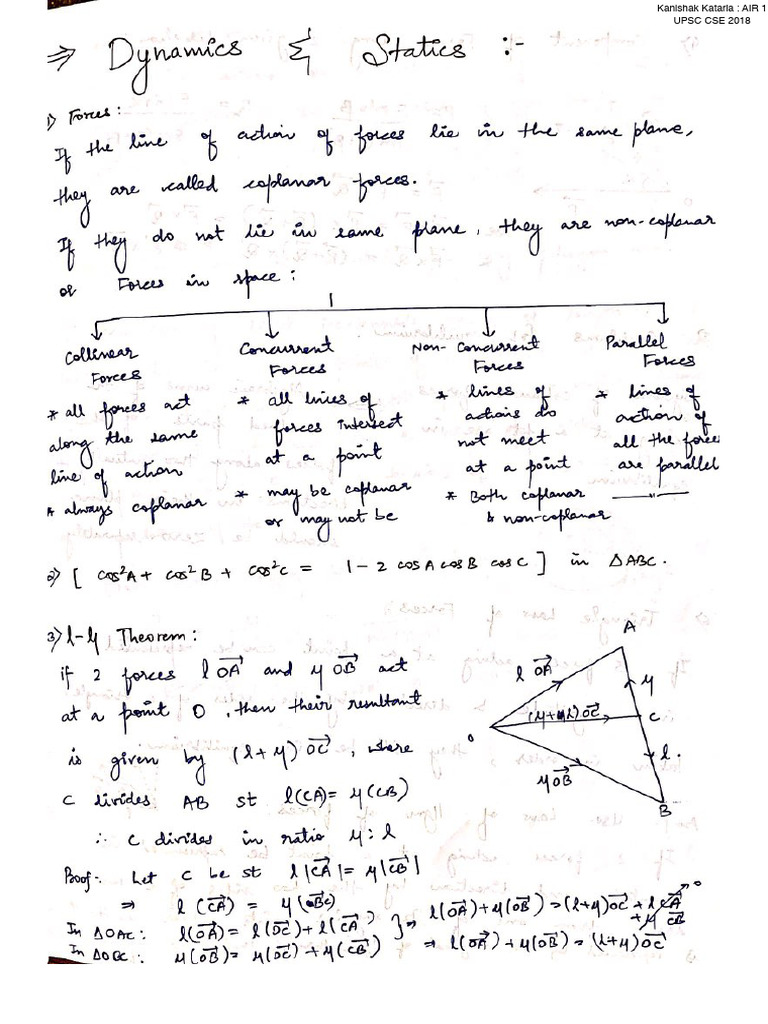 Kanishak Kataria : AIR 1
UPSC CSE 2018
⇒ Dynamics & Statics :-
1) Forces :
If the line of action of forces lie in the same plane,
they are called coplanar forces.
If they do not lie in same plane, they are non-coplanar
or Forces in space :
Collinear Forces
* all forces act
along the same
line of action
* always coplanar
Concurrent Forces
* all lines of
forces intersect
at a point
* may be coplanar
or may not be
Non-Concurrent Forces
* lines of
actions do
not meet
at a point
* Both coplanar
& non-coplanar
Parallel Forces
* lines of
action of
all the force
are parallel
—"—
2) [ cos²A + cos²B + cos²C = 1 - 2 cosA cosB cosC ] in ΔABC.
3) l-μ Theorem :
if 2 forces l OA→ and μ OB→ act
at a point O, then their resultant
is given by (l+μ) OC→, where
C divides AB st l(CA) = μ(CB)
∴ C divides in ratio μ : l
A
l OA→
μ
O
C
l.
μ OB→
B
Proof:- Let C be st l|CA→| = μ|CB→|
⇒ l (CA→) = μ(BC→)
In ΔOAC : l(OA→) = l(OC→) + l(CA→)
In ΔOBC : μ(OB→) = μ(OC→) + μ(CB→)
} ⇒ l(OA→) + μ(OB→) = (l+μ)OC→ + l CA→ + μ CB→ 0
⇒ l(OA→) + μ(OB→) = (l+μ)OC→